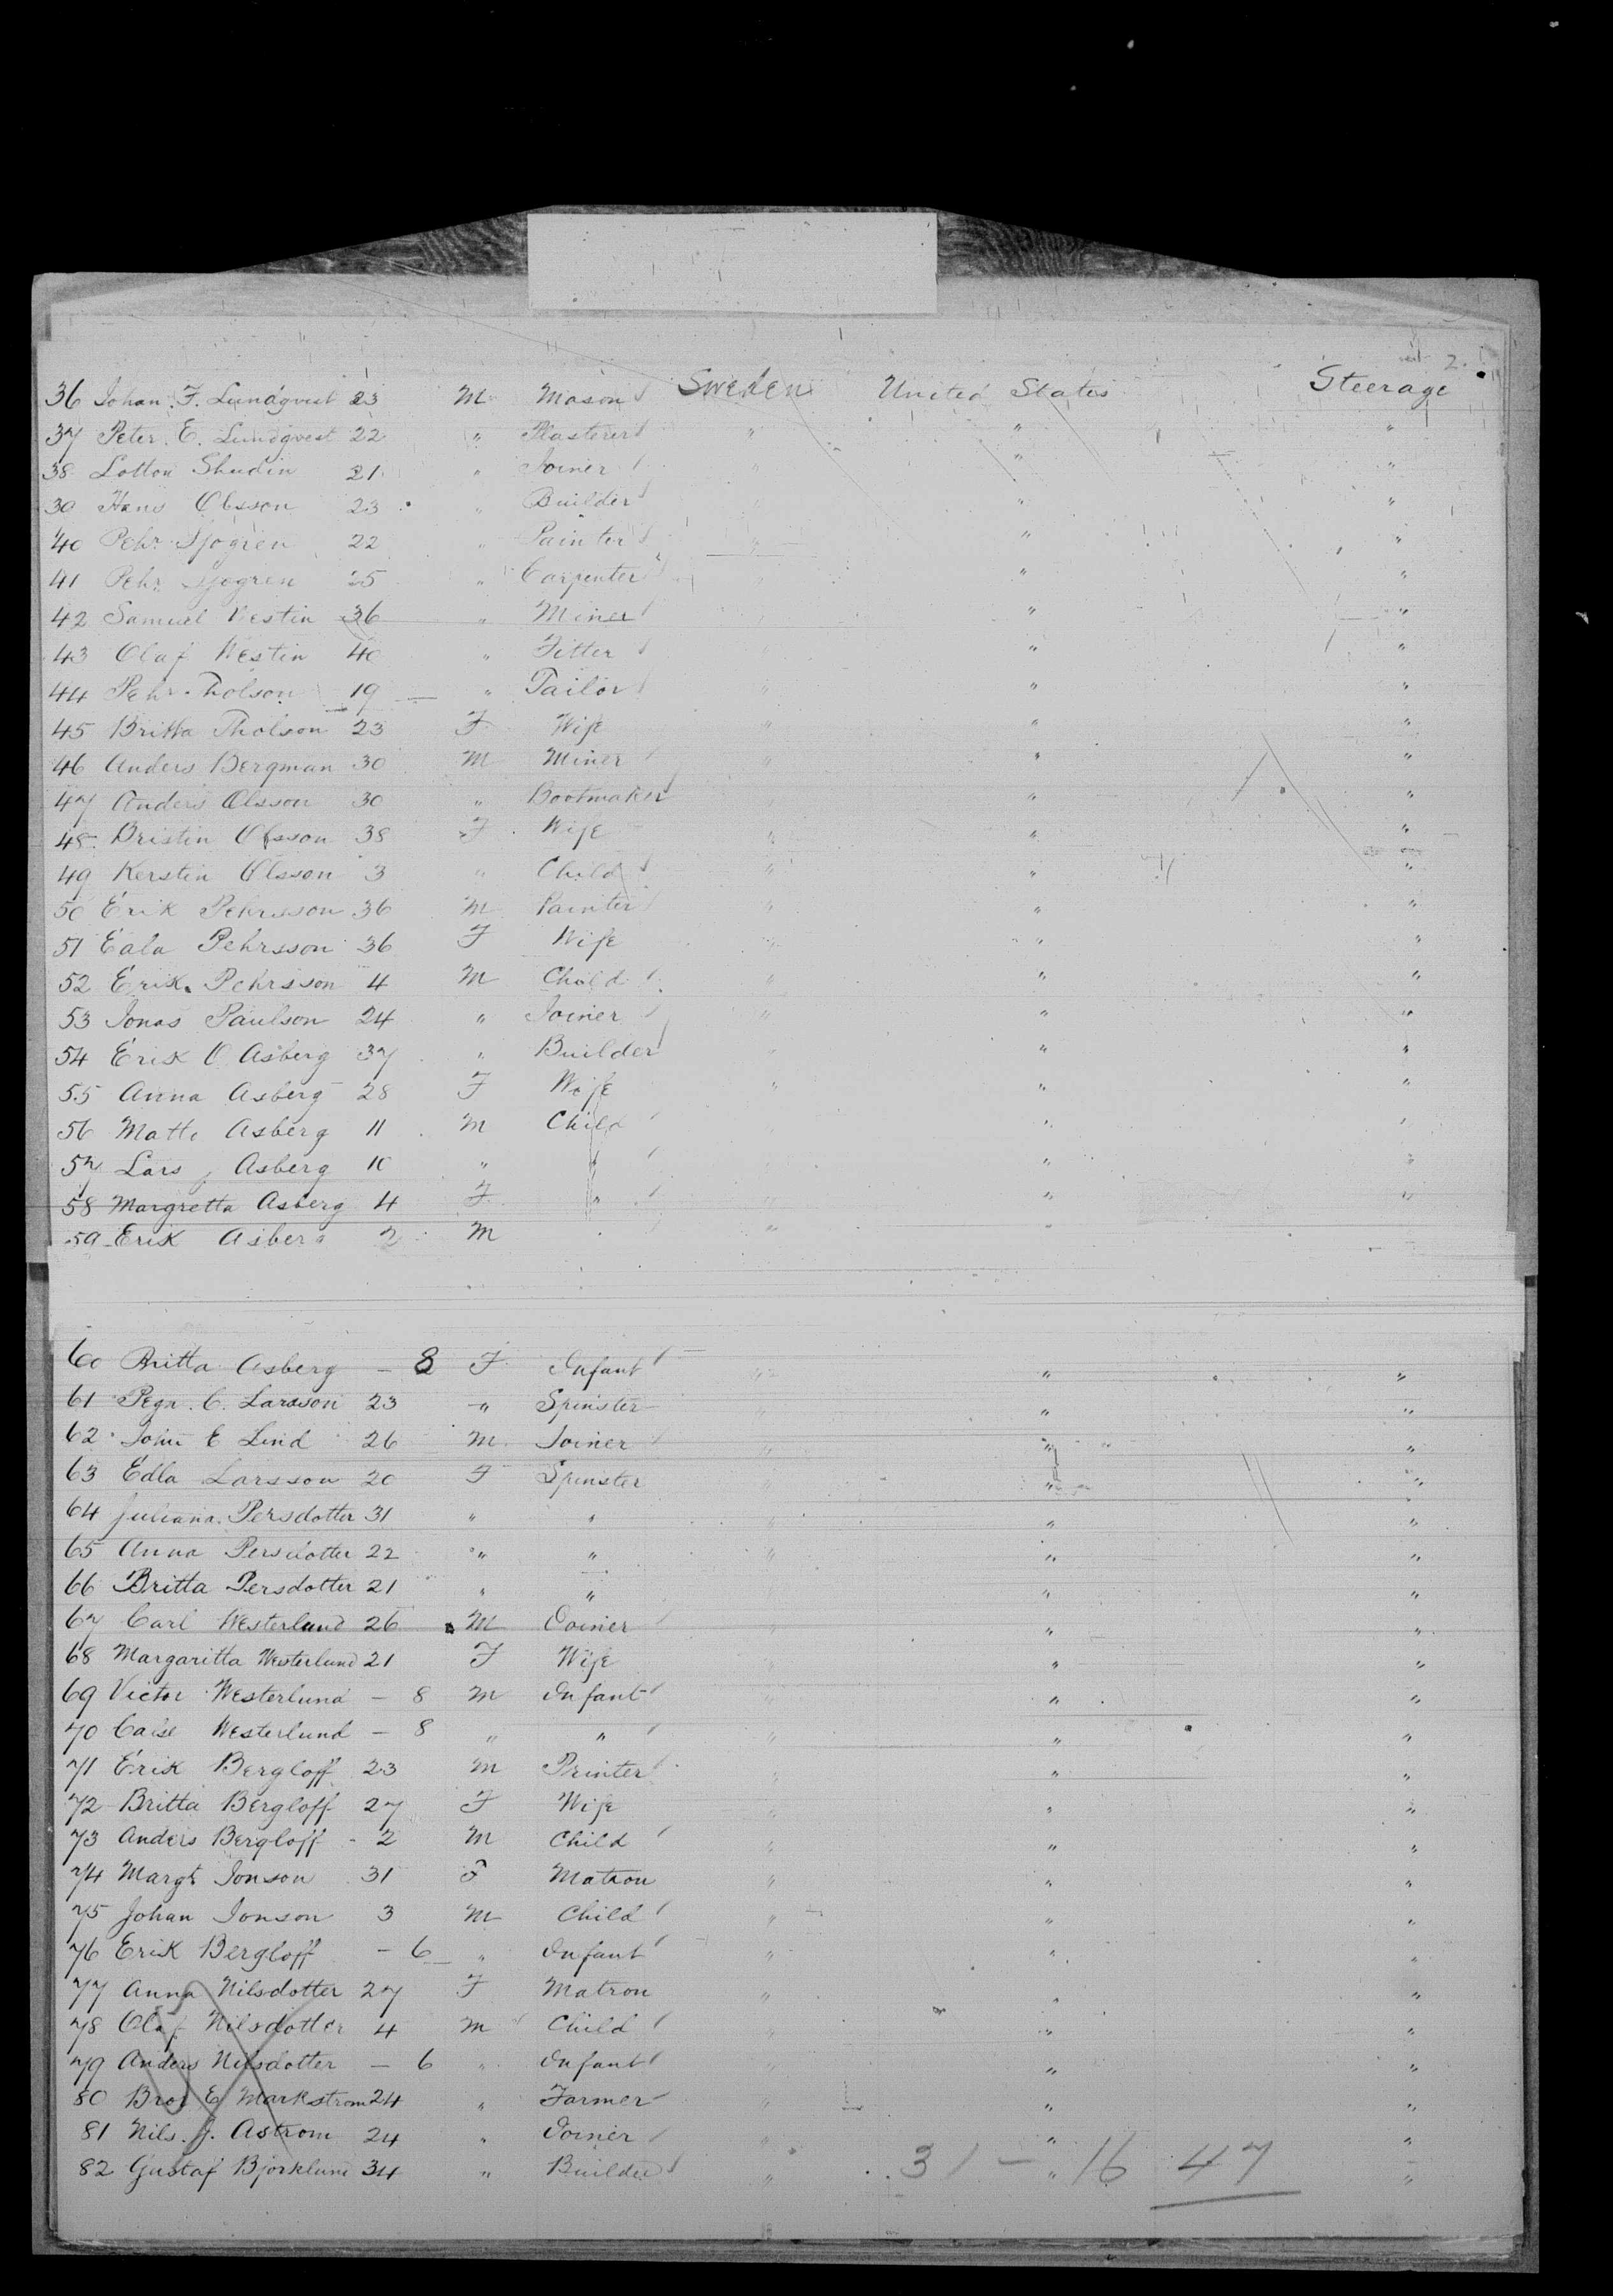 2.
36 Johan. F. Lundqvist 23 M Mason Sweden United States Steerage
37 Peter. E. Lundqvest 22 " Plasterer " " "
38 Lotton Shudin 21 " Joiner " "
39 Hans Olsson 23 " Builder " "
40 Pehr Sjogren 22 " Painter " " "
41 Pehr Sjogren 25 " Carpenter " "
42 Samuel Westin 36 " Miner " "
43 Olaf Westin 40 " Fitter " " "
44 Pehr Tholson 19 " Tailor " " "
45 Britta Tholson 23 F Wife " " "
46 Anders Bergman 30 M Miner " " "
47 Anders Olsson 30 " Bootmaker " " "
48 Bristin Olsson 38 F Wife " " "
49 Kerstin Olsson 3 " Child " " "
50 Erik Pehrsson 36 M Painter " " "
51 Eala Pehrsson 36 F Wife " " "
52 Erik Pehrsson 4 M Child " " "
53 Jonas Paulson 24 " Joiner " " "
54 Erik O Asberg 37 " Builder " " "
55 Anna Asberg 28 F Wife " " "
56 Matts Asberg 11 M Child " "
57 Lars J Asberg 10 " " " "
58 Margretta Asberg 4 F " " " "
59 Erik Asberg 2 M " "
60 Britta Asberg - 8 F Infant " " "
61 Pegn. C. Larsson 23 " Spinster " " "
62 John E Lind 26 M Joiner " " "
63 Edla Larsson 20 F Spinster " " "
64 Juliana Persdotter 31 " " " " "
65 Anna Persdotter 22 " " " " "
66 Britta Persdotter 21 " " " " "
67 Carl Westerlund 26 M Joiner " " "
68 Margaritta Westerlund 21 F Wife " " "
69 Victor Westerlund - 8 M Infant " " "
70 Calse Westerlund - 8 " " " " "
71 Erik Bergloff 23 M Printer " " "
72 Britta Bergloff 27 F Wife " " "
73 Anders Bergloff - 2 M Child " " "
74 Margt Jonson 31 F Matron " " "
75 Johan Jonson 3 M Child " " "
76 Erik Bergloff - 6 " Infant " " "
77 Anna Nilsdotter 27 F Matron " " "
78 Olaf Nilsdotter 4 M Child " " "
79 Anders Nilsdotter - 6 " Infant " " "
80 Bror E Markstrom 24 " Farmer " " "
81 Nils. J. Astrom 24 " Joiner " " "
82 Gustaf Bjorklund 34 " Builder " " "
31 - 16 47